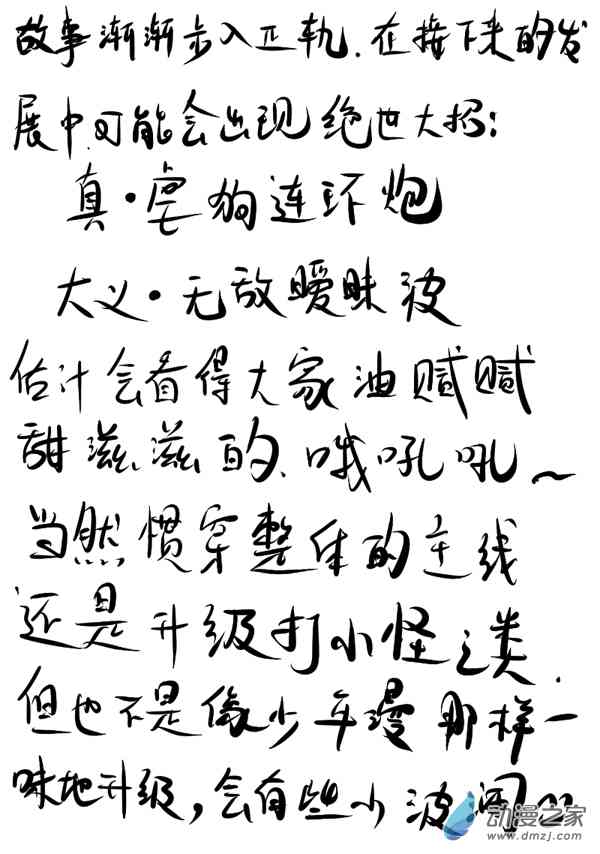 故事渐渐步入正轨.在接下来的发
展中可能会出现绝世大招:
真·虐狗连环炮
大义·无敌暧昧波
估计会看得大家油腻腻
甜滋滋的.哦吼吼~
当然惯穿整体的主线
还是升级打小怪之类.
但也不是像少年漫那样一
味地升级,会有些小波澜
动漫之家
www.dmzj.com